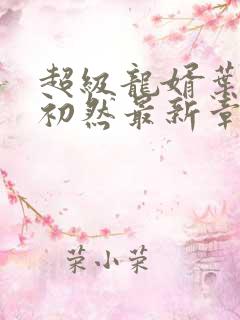 超級龍婿葉
初然最新章
荣小荣